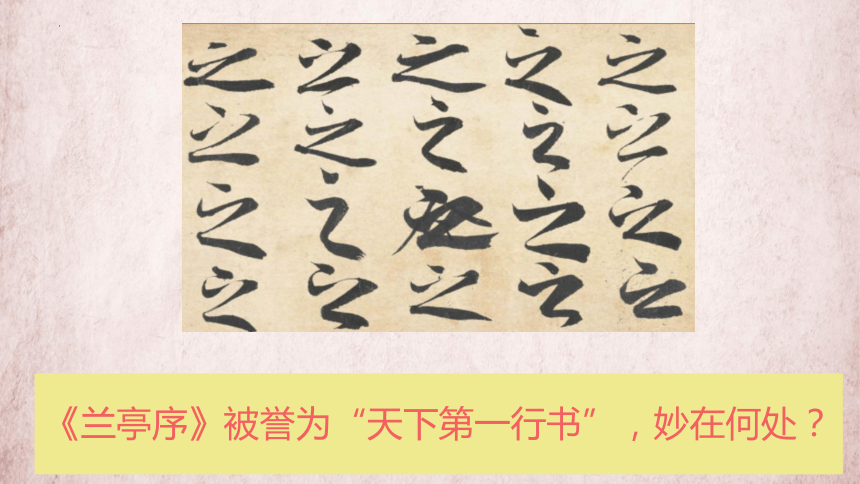 之 之 之 之 之
之 之 之 之 之
之 之 之 之
之 之 之 之 之
《兰亭序》被誉为“天下第一行书”，妙在何处？